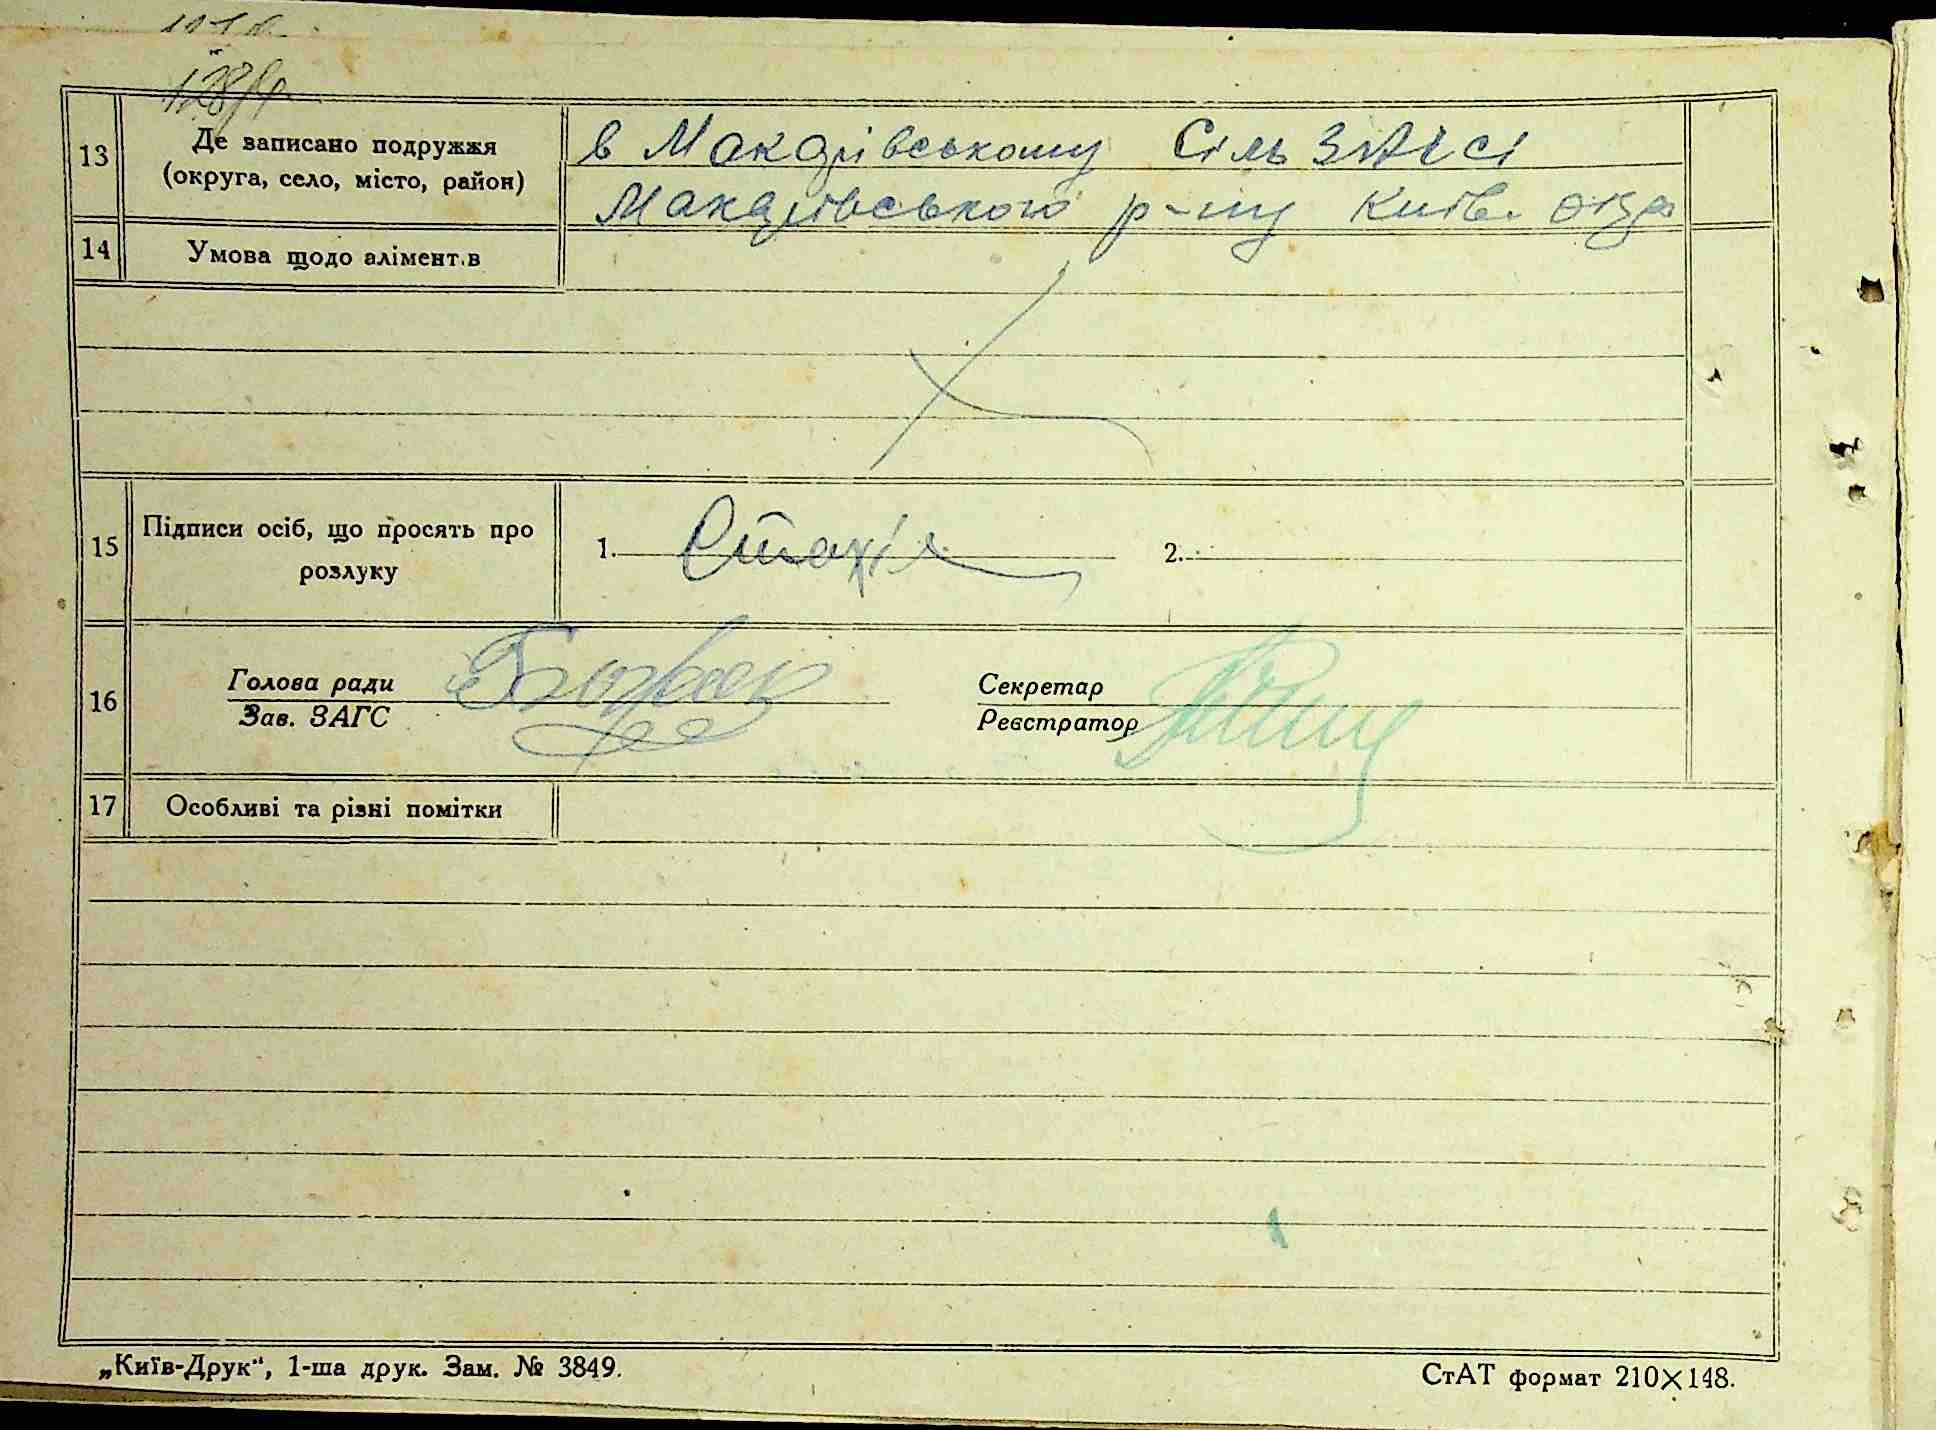 13
Де записано подружжя
(округа, село, місто, район)
в Макарівському Сіль ЗАГСі
Макарівського р-ну Київ.
14
Умова щодо алімент.в
15
Підписи осіб, що просять про
розлуку
1.
2.
16
Голова ради
Зав. ЗАГС
Секретар
Реєстратор
17
Особливі та різні помітки
„Київ-Друк“, 1-ша друк. Зам. № 3849.
СтАТ формат 210×148.